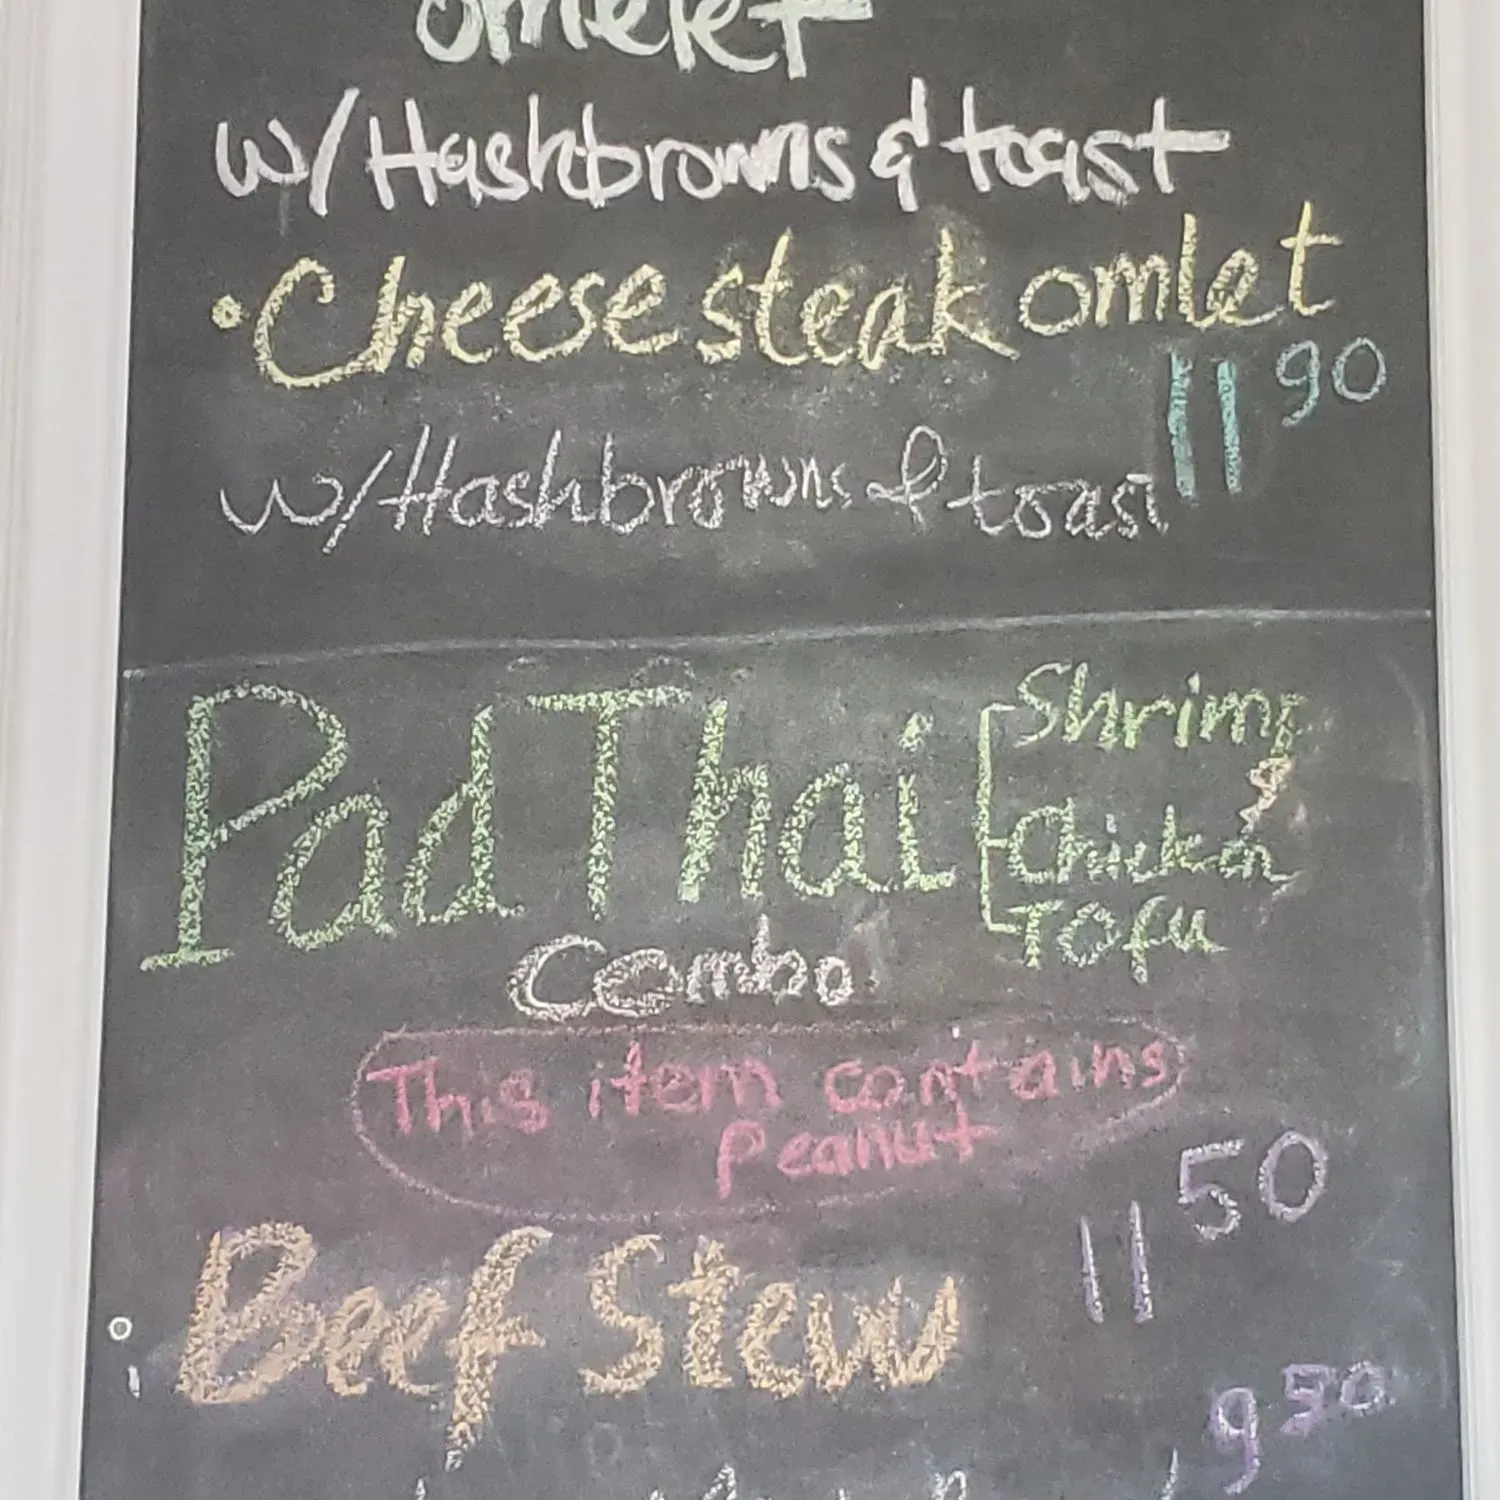 omelet
w/Hashbrowns & toast
• Cheese steak omlet
11 90
w/Hashbrowns & toast
Pad Thai
Shrimp
&
Chicken
Tofu
Combo
This item contains
peanut
11 50
Beef Stew
9 50